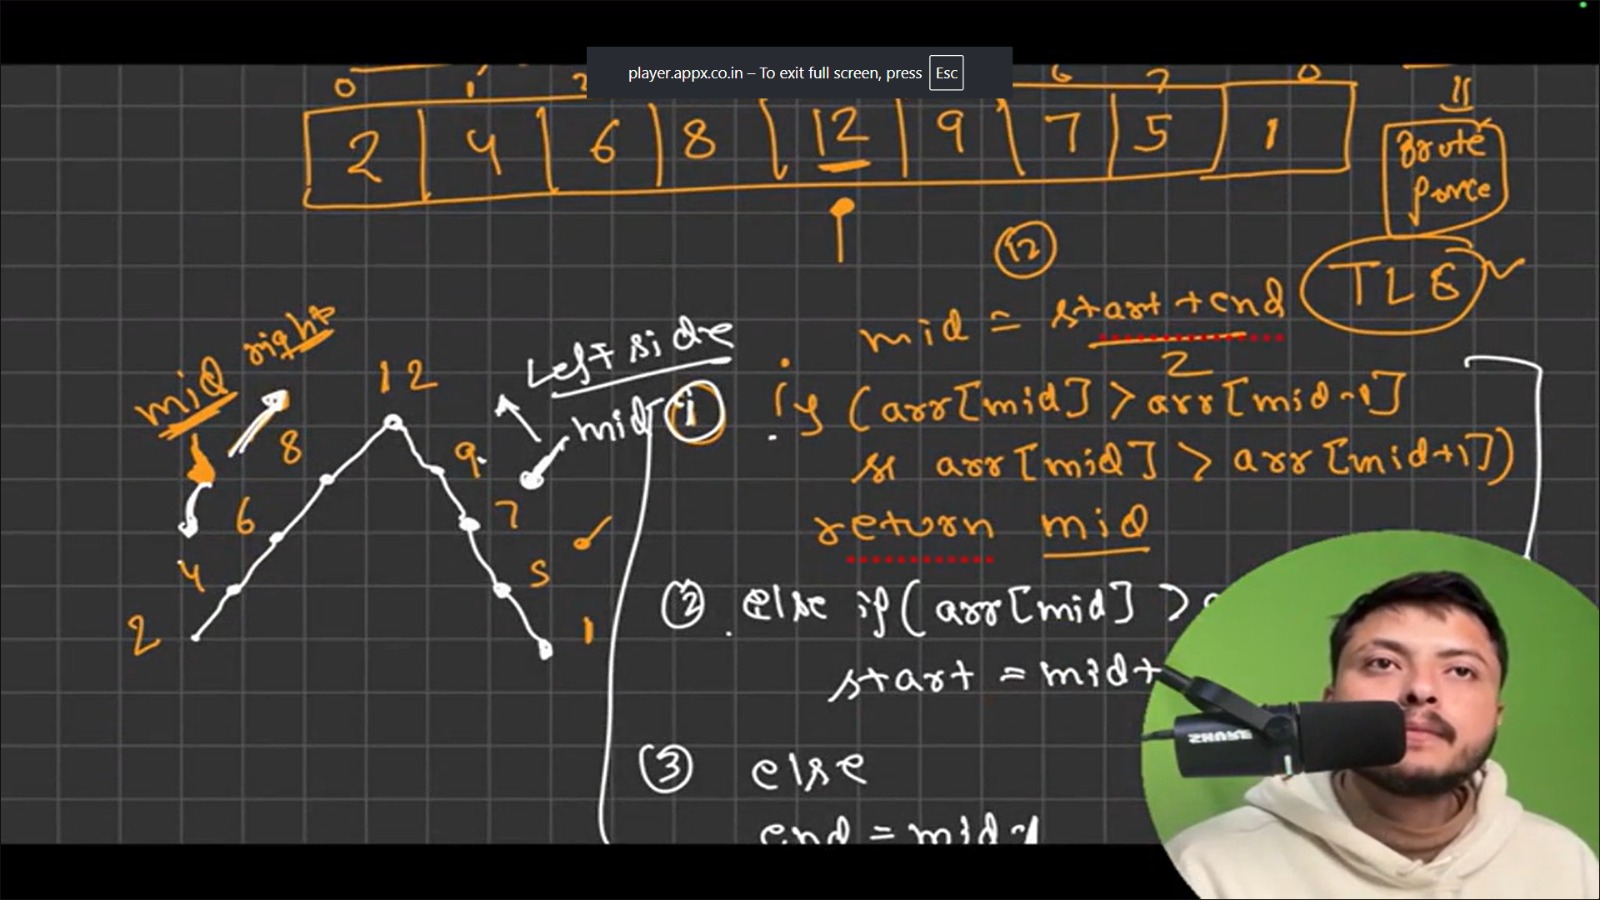 player.appx.co.in – To exit full screen, press Esc
0 1 2 6 7
2 4 6 8 12 9 7 5 1
Brute
force
12
TLE
mid = start + end
2
mid right
Left side
12
8
mid
9
6
7
4
5
2
1
1 if (arr[mid] > arr[mid-1]
arr[mid] > arr[mid+1])
return mid
2 else if (arr[mid] >
start = mid+
3 else
end = mid-1
SHURE